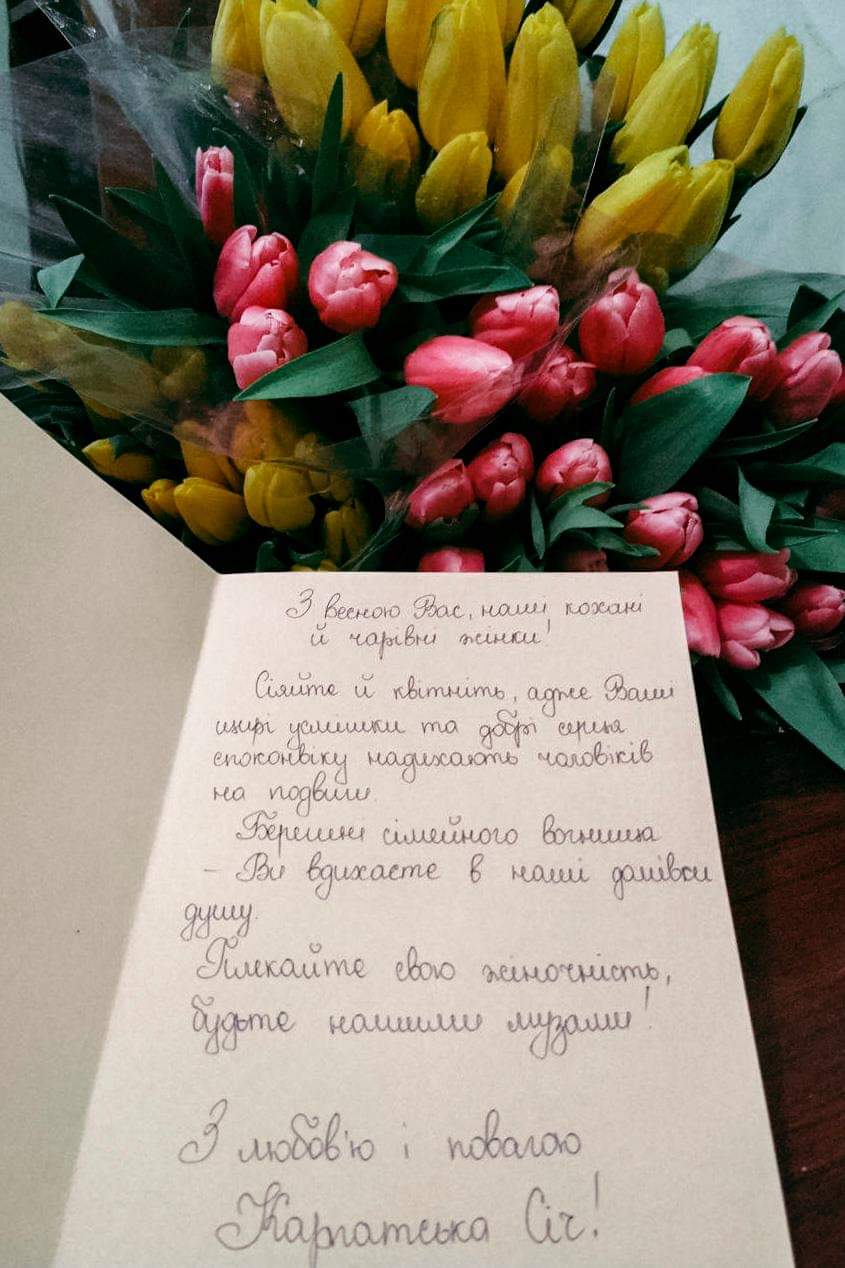 З весною Вас, наші кохані
й чарівні жінки!
Сіяйте й квітніть, адже Ваші
щирі усмішки та добрі серця
споконвіку надихають чоловіків
на подвиги.
Берегині сімейного вогнища
– Ви вдихаєте в наші домівки
душу.
Плекайте свою жіночність,
будьте нашими музами!
З любов'ю і повагою
Карпатська Січ!